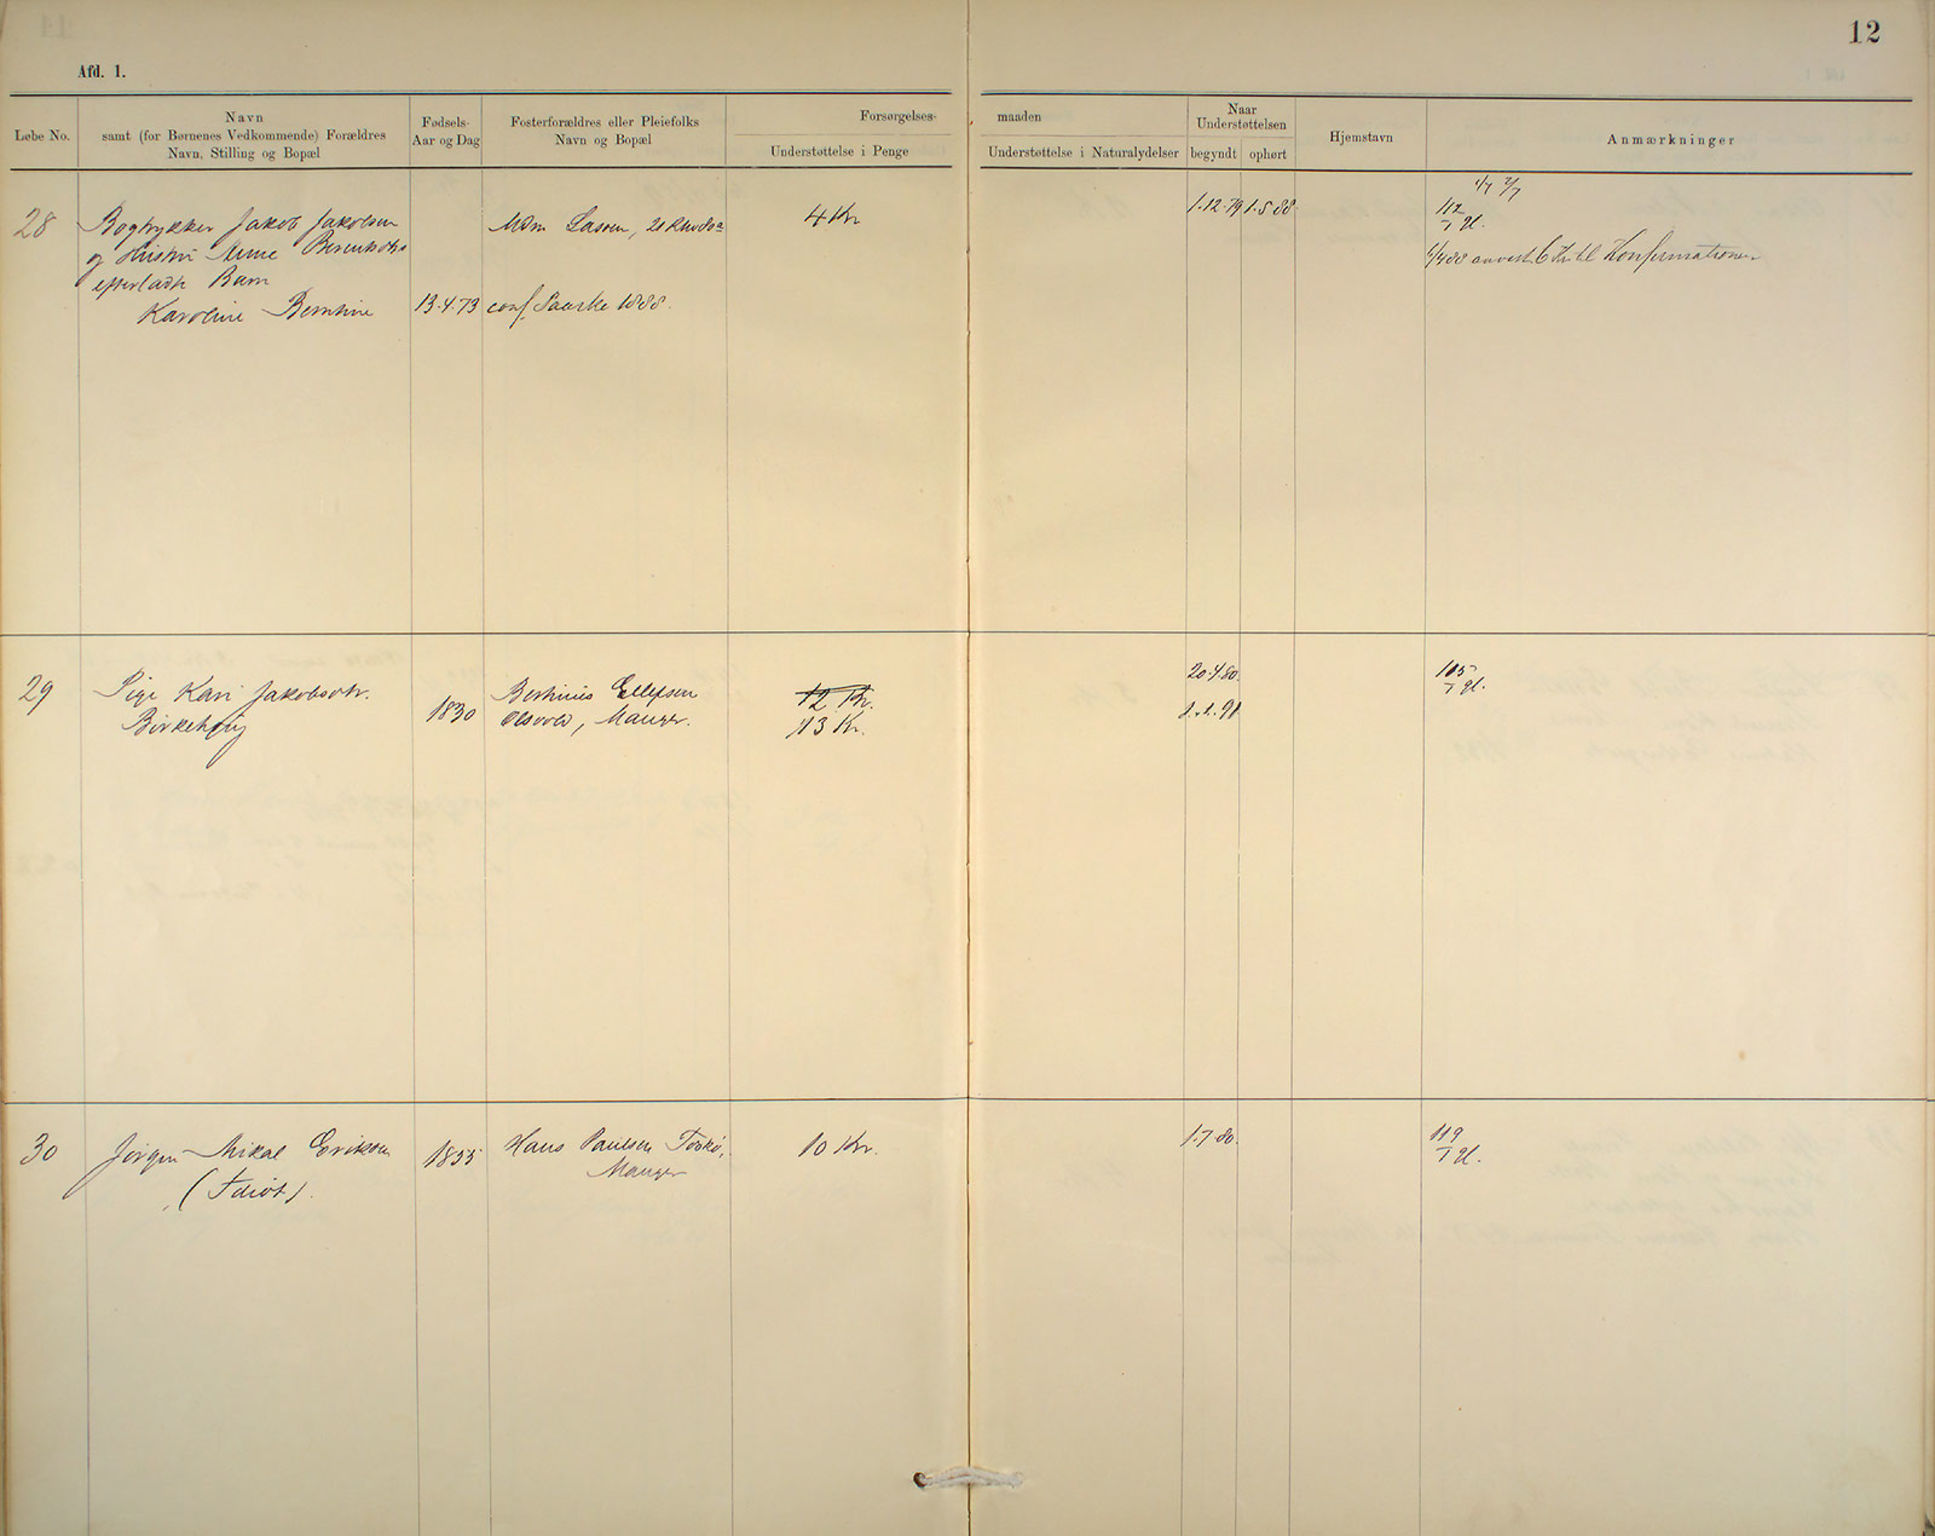 12
Afd. 1.
Løbe No.
Navn
samt (for Børnenes Vedkommende) Forældres
Navn, Stilling og Bopæl
Fødsels-
Aar og Dag
Fosterforældres eller Pleiefolks
Navn og Bopæl
Forsørgelses-
maaden
Understøttelse i Penge
Understøttelse i Naturalydelser
Naar
Understøttelsen
begyndt
ophørt
Hjemstavn
Anmærkninger
28
Bogtrykker Jakob Jakobsen
og Hustru Anne
efterladte Barn
Karoline Berntine
13.4.73
Mdm Lassen, 21
conf. Paaske 1888.
4 Kr
1.12.79
1.5.88.
1/7 2/7
112
1 gl.
1/4 88 anvist 6 Kr til Konfirmationen
29
Pige Kari Jakobsdtr.
Birkehaug
1830
Bertinius Ellefsen
Olsvold, Manger.
12 Kr.
13 Kr.
20.4.80.
1.1.91
105
1 gl.
30
Jørgen Mikal Eriksen
(Idiot).
1855
Hans Paulsen Toskø,
Manger
10 Kr.
1.7.80.
119
1 gl.